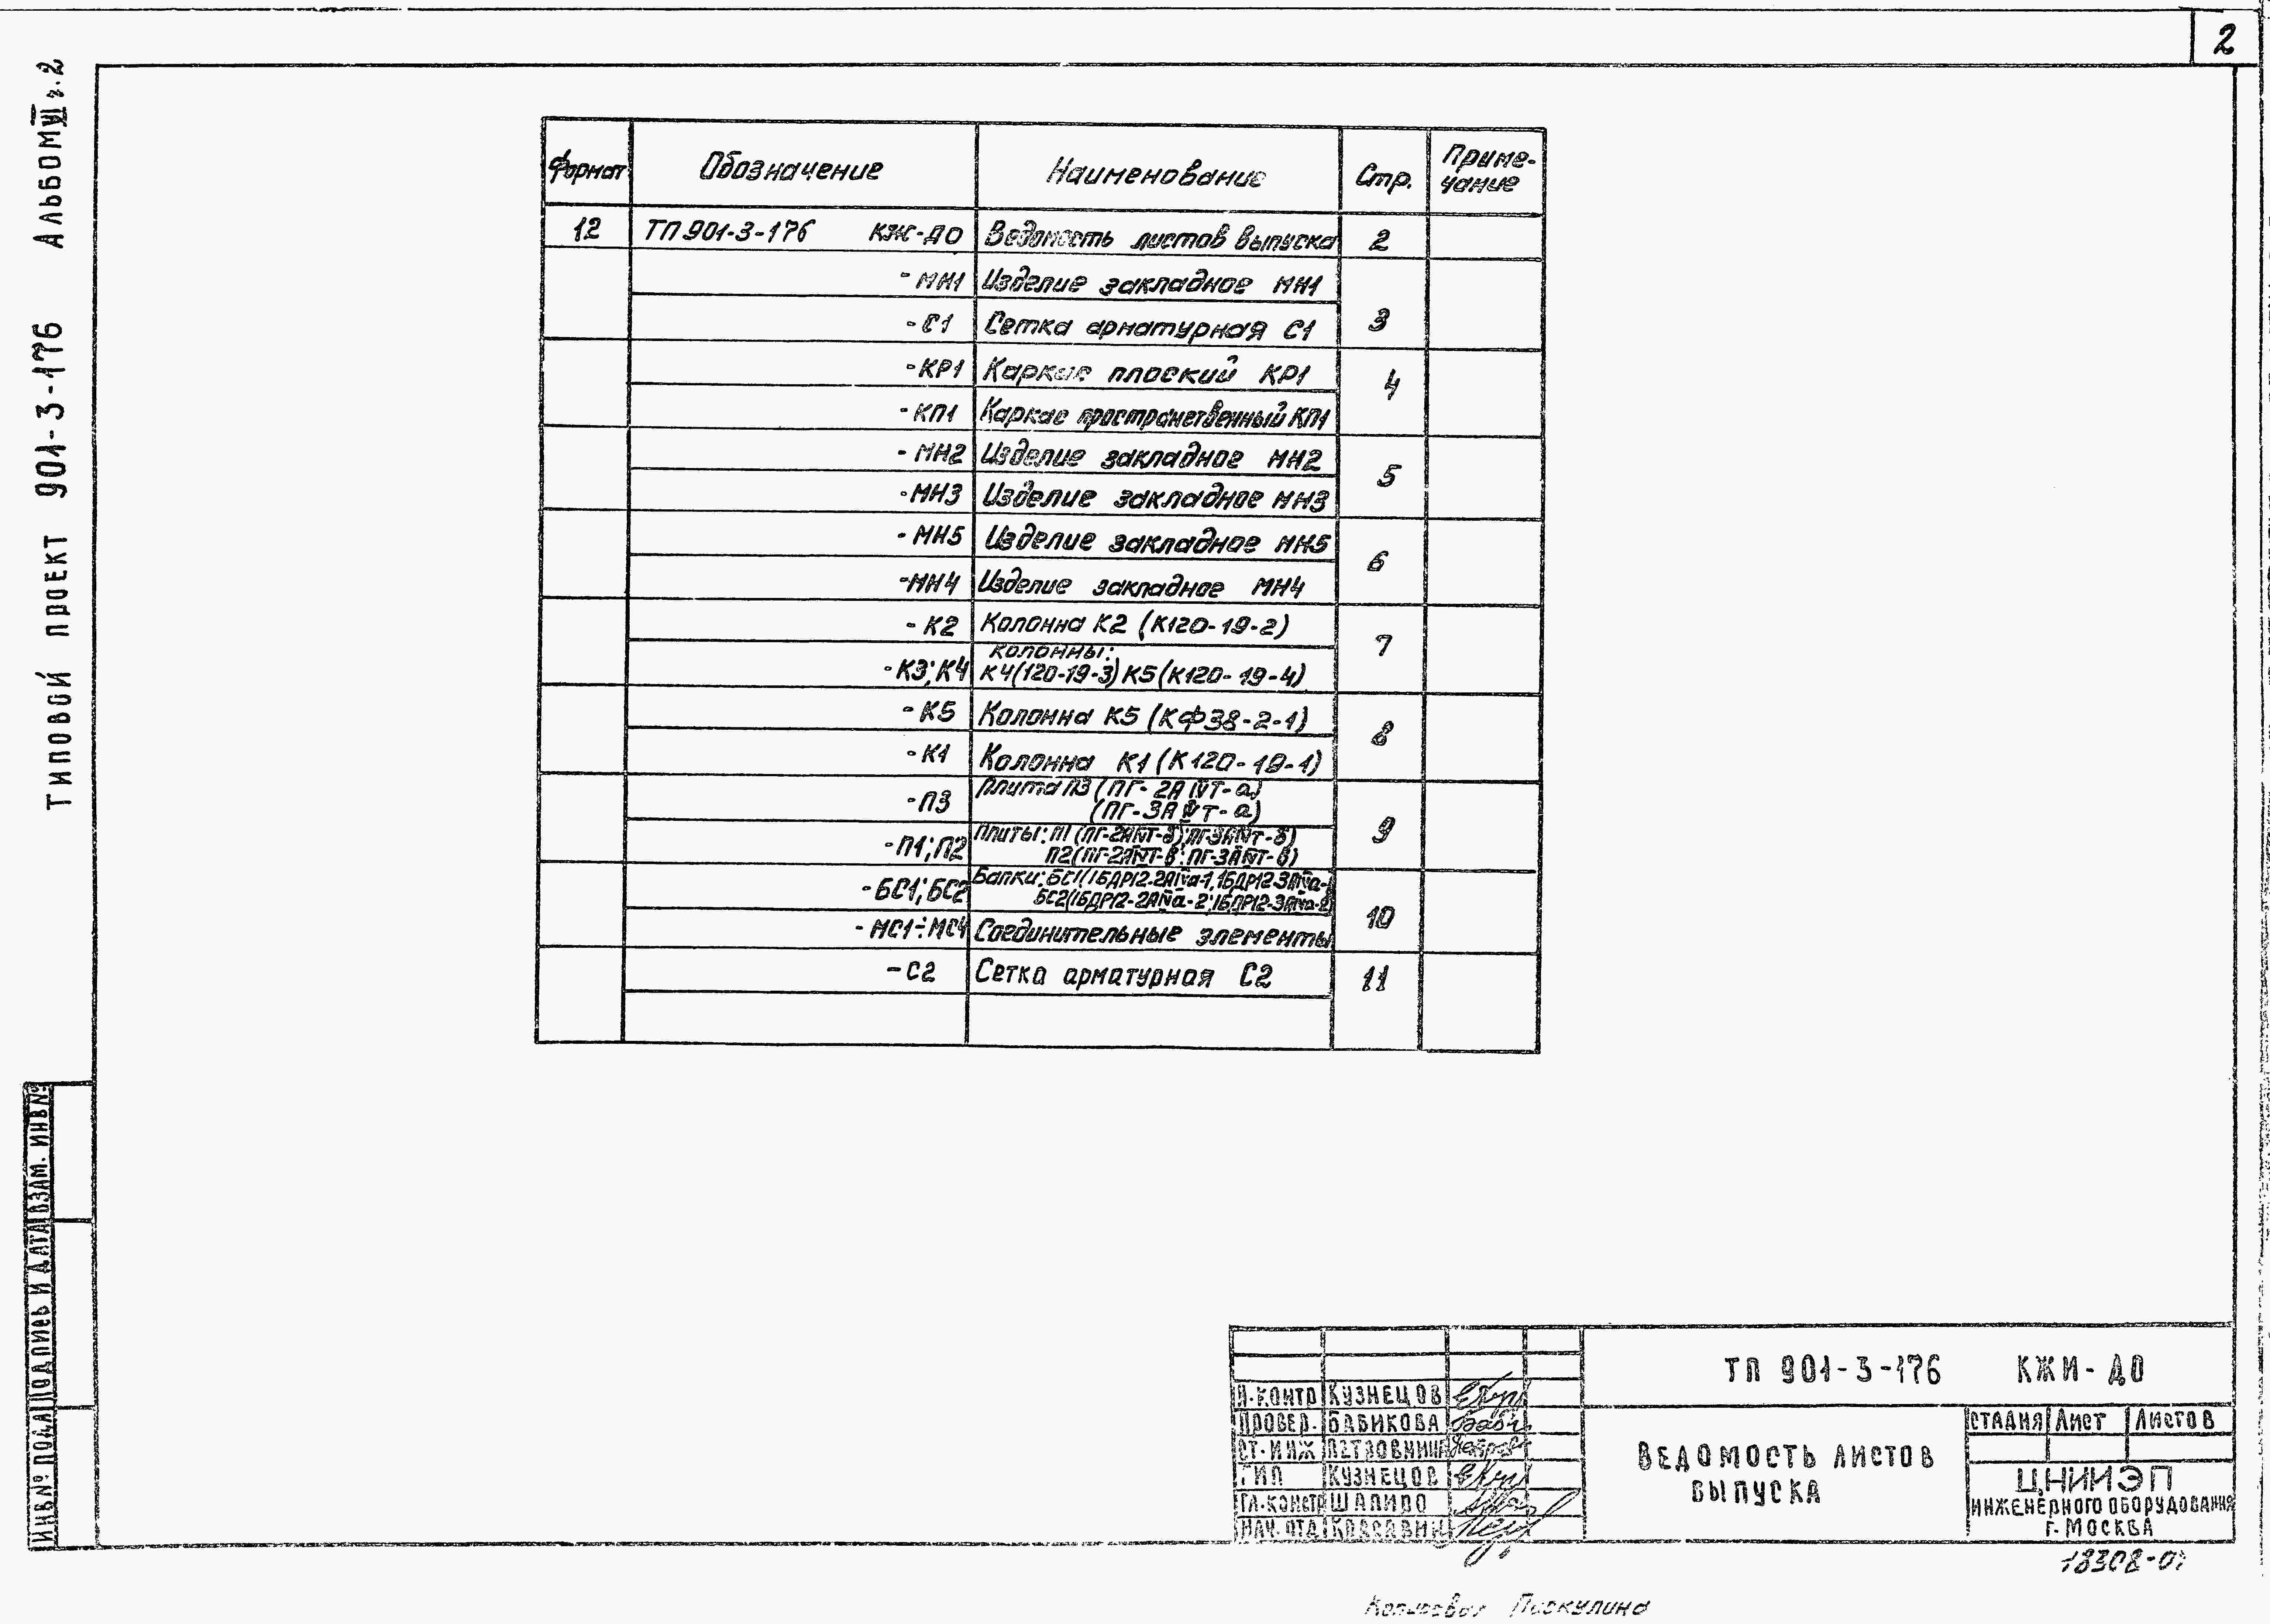 2
Альбом VI ч.2
Типовой проект 901-3-176
Формат Обозначение Наименование Стр. Приме-
чание
12 ТП 901-3-176 КЖИ-ДО Ведомость листов выпуска 2
-МН1 Изделие закладное МН1
-С1 Сетка арматурная С1 3
-КР1 Каркас плоский КР1 4
-КП1 Каркас пространственный КП1
-МН2 Изделие закладное МН2
-МН3 Изделие закладное МН3 5
-МН5 Изделие закладное МН5
-МН4 Изделие закладное МН4 6
-К2 Колонна К2 (К120-19-2)
Колонны: 7
-К3; К4 К4(120-19-3) К5(К120-19-4)
-К5 Колонна К5 (КФ38-2-1)
-К1 Колонна К1 (К120-19-1) 8
-П3 Плита П3 (ПГ-2АIVТ-а)
(ПГ-3АIVТ-а)
-П1; П2 Плиты: П1 (ПГ-2АIVТ-б); ПГ-3АIVТ-б) 9
П2(ПГ-2АIVТ-в; ПГ-3АIVТ-в)
-БС1; БС2 Балки: БС1(1БДР12-2АIVа-1, 1БДР12-3АIVа-1
БС2(1БДР12-2АIVа-2; 1БДР12-3АIVа-2)
-МС1÷МС4 Соединительные элементы 10
-С2 Сетка арматурная С2 11
Взам. инв№
Подпись и дата
Инв№ подл
ТП 901-3-176 КЖИ-ДО
Н.контр Кузнецов
Провер. Бабикова
Ст.инж
ГИП Кузнецов
Гл.констр Шапиро
Нач.отд Красавин
Ведомость листов
выпуска
Стадия Лист Листов
ЦНИИЭП
инженерного оборудования
г. Москва
18308-07
Копировал Пискулина